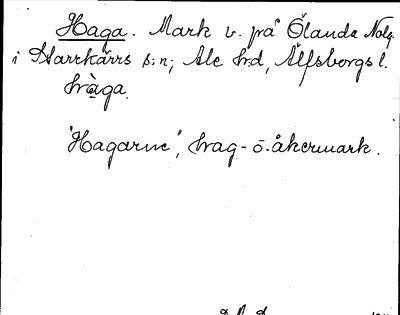 Haga. Mark v. på Ölanda Nolg.
i Starrkärrs s:n; Ale h:d, Älfsborgs l.
hràga.
"Hagarne", hag- o. åkermark.